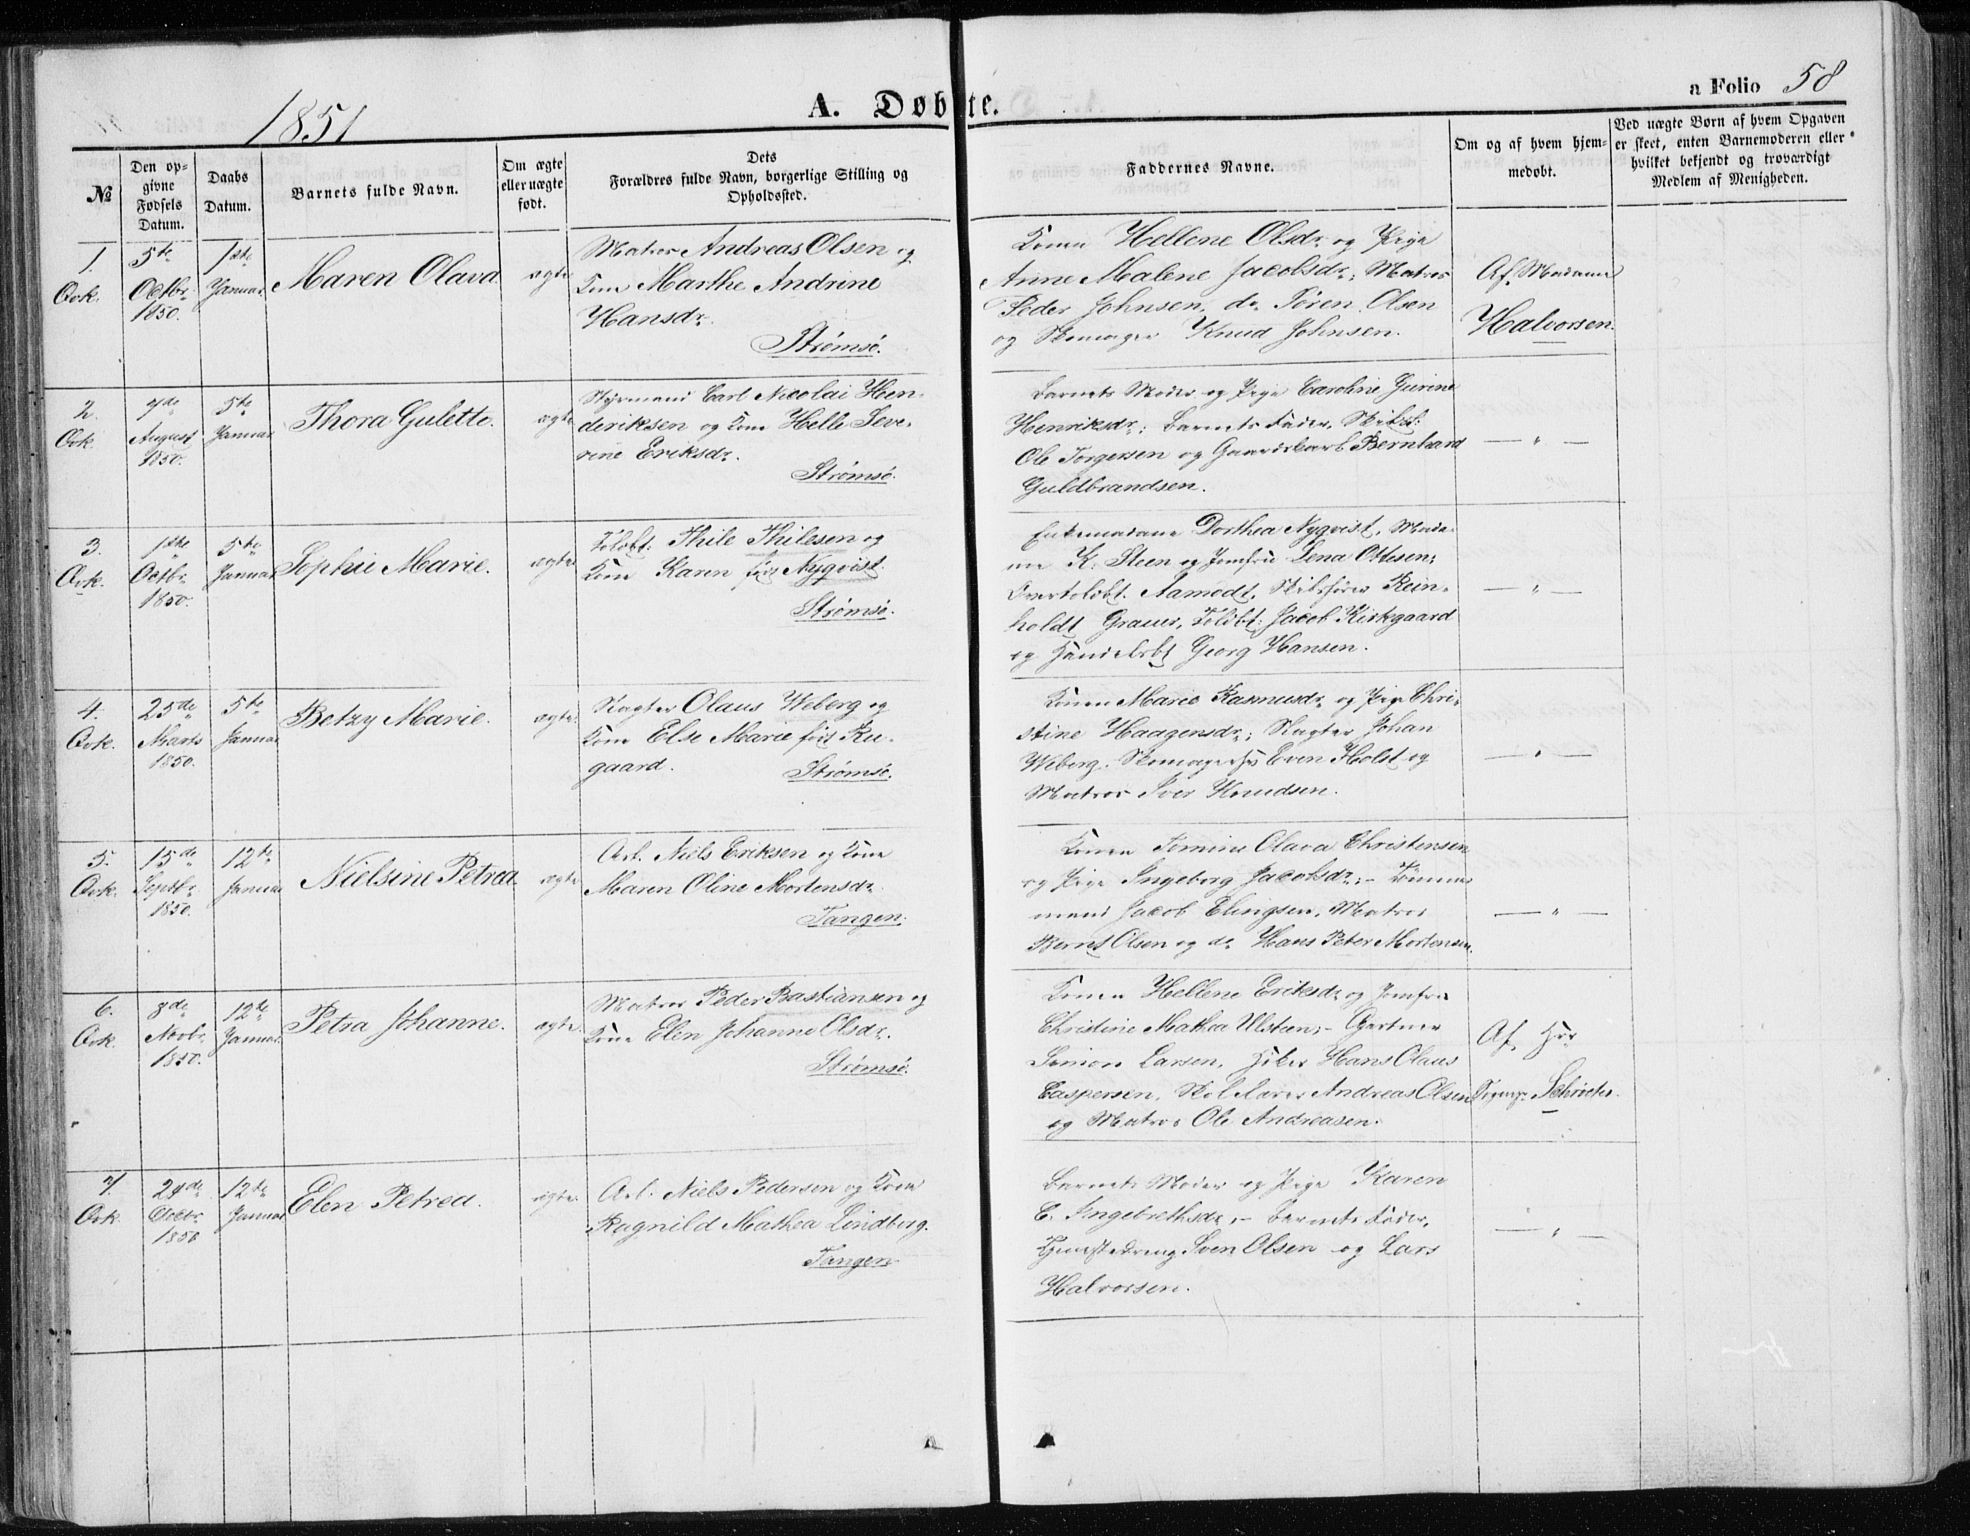 1851
A. Døbte.
a Folio 58
№
Den opgivne Fødsels Datum.
Daabs Datum.
Barnets fulde Navn.
Om ægte eller uægte født.
Dets Forældres fulde Navn, borgerlige Stilling og Opholdssted.
Faddernes Navne.
Om og af hvem hjemmedøbt.
Ved uægte Børn af hvem Opgaven er skeet, enten Barnemoderen eller hvilket bekjendt og troværdigt Medlem af Menigheden.
1.
5te Octbr. 1850.
1ste Januar
Maren Olava
ægte
Matros Andreas Olsen og
Kone Marthe Andrine
Hansdr.
Strømsø.
Konen Hellene Olsdr. og Pige
Anne Malene Jacobsdr.; Matros
Peder Johnsen, do. Søren Olsen
og Skomager Knud Johnsen.
Af Madame
Halvorsen.
2.
7de August 1850.
5te Januar
Thora Gulette.
ægte
Styrmand Carl Nicolai Hen-
deriksen og Kone Helle Seve-
rine Eriksdr.
Strømsø.
Barnets Moder og Pige Caroline Gurine
Henriksdr.; Barnets Fader,
Ole Torgersen og Gaardskarl Bernhard
Guldbrandsen.
— " —
3.
1ste Octbr. 1850.
5te Januar
Sophie Marie.
ægte
Toldbt. Thile Thilesen og
Kone Karen født Nyqvist.
Strømsø.
Enkemadame Dorthea Nyqvist, Mada-
me K. Steen og Jomfru Lena Ottesen;
Overtoldbt. Aamodt, Skibsfører Rein-
holdt Grauer, Toldbt. Jacob Kirkgaard
og Handelsbt Georg Hansen.
— " —
4.
25de Marts 1850.
5te Januar
Betzy Marie.
ægte
Slagter Olaus Weberg og
Kone Else Marie født Ru-
gaard.
Strømsø.
Konen Marie Rasmusdr. og Pige Chri-
stine Haagensdr.; Slagter Johan
Weberg, Even Holst og
Matros Iver Knudsen.
— " —
5.
15de Septbr. 1850.
12te Januar
Nielsine Petrea
ægte
Arb. Niels Eriksen og Kone
Maren Oline Mortensdr.
Tangen.
Konen Olava Christensen
og Pige Ingeborg Jacobsdr.; - Tømmer-
mand Jacob Elingsen, Matros
Bernt Olsen og do. Hans Peter Mortensen.
— " —
6.
8de Novbr. 1850.
12te Januar.
Petra Johanne.
ægte.
Matros Peder Bastiansen og
Kone Elen Johanne Olsdr.
Strømsø.
Konen Hellene Eriksdr. og Jomfru
Christine Mathea Ulsteen; - Gartner
Simon Larsen, Hans Olaus
Caspersen, Andreas Olsen
og Matros Ole Andreasen.
Af Hr.
Schrøeter.
7.
24de Octbr. 1850
12te Januar
Elen Petrea.
ægte.
Arb. Niels Pedersen og Kone
Ragnild Mathea Lindberg.
Tangen
Barnets Moder og Pige Karen
E. Ingebrethsdr.; - Barnets Fader,
Tjenestedreng Sven Olsen og Lars
Halvorsen.
— " —